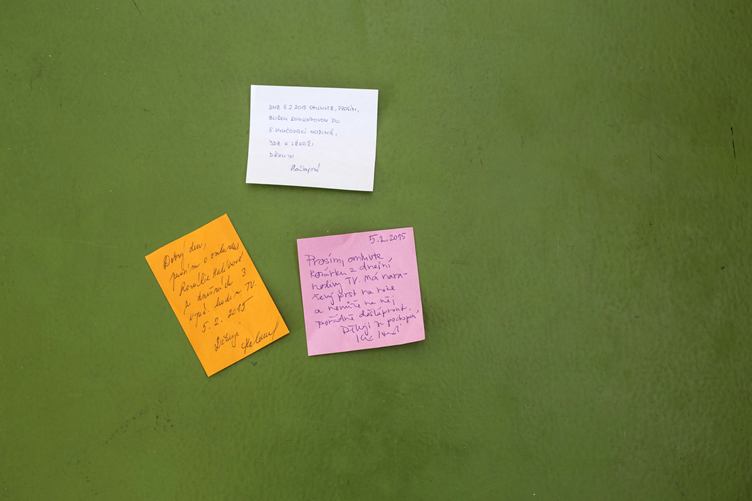 DNE 5.2.2015 OMLUVTE, PROSÍM,
DO
5. VYUČOVACÍ HODINĚ,
JDE K LÉKAŘI
DĚKUJI
Dobrý den,
prosím o omluvení
Rozálie
z dnešních 3
vyuč. hodin TV.
5. 2. 2015
Děkuji
5.2.2015
Prosím, omluvte
z dnešní
hodiny TV. Má nara-
žený prst na noze
a nemůže na něj
pořádně došlápnout.
Děkuji za pochopení,